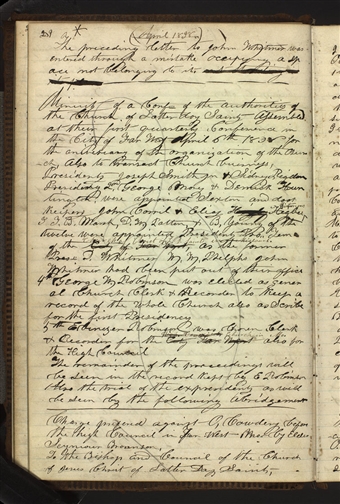 April 1838
The preceding letter to John Whitmer was
entered through a mistake occupying a sp
ace not belonging to it
Minuits of a Conf of the authorities of
the Church of Latter Day Saints Assembled
at their first quarterly Conference in
the City of Far West April 6th 1838 For
the anniversary of the organization of the Chur
ch, Also to transact Church business,
Presidents Joseph Smith Jr & Sidney Rigdon
Presiding 2. George Morey & Demick Hun
tington, were appointed Sexton and door
Keepers John Corrill & Elias Higbee
3 T. B. Marsh D. W. Patten & B. Young of the
twelve were appointed Presidents
of the as the former
Pres D. Whitmer W. W. Phelps John
Whitmer had been put out of their office
4th George W. Robinson was elected as gener
al Church Clerk & Recorder to keep a
record of the whole Church also as Scribe
for the first Presidency
5th Ebenezer Robinson was Chosen Clerk
& Recorder for also for
the High Council
The remainder of the proceedings will
be seen in the record kept by E. Robinson
Also the trial of the expresidents as will
be seen by the following abridgement
Charge prefered against O. Cowdery before
the high Council in Far West Mo. by Elder
Seymour Brunson
To the Bishop and Council of the Church
of Jesus Christ of Latter Day Saints,